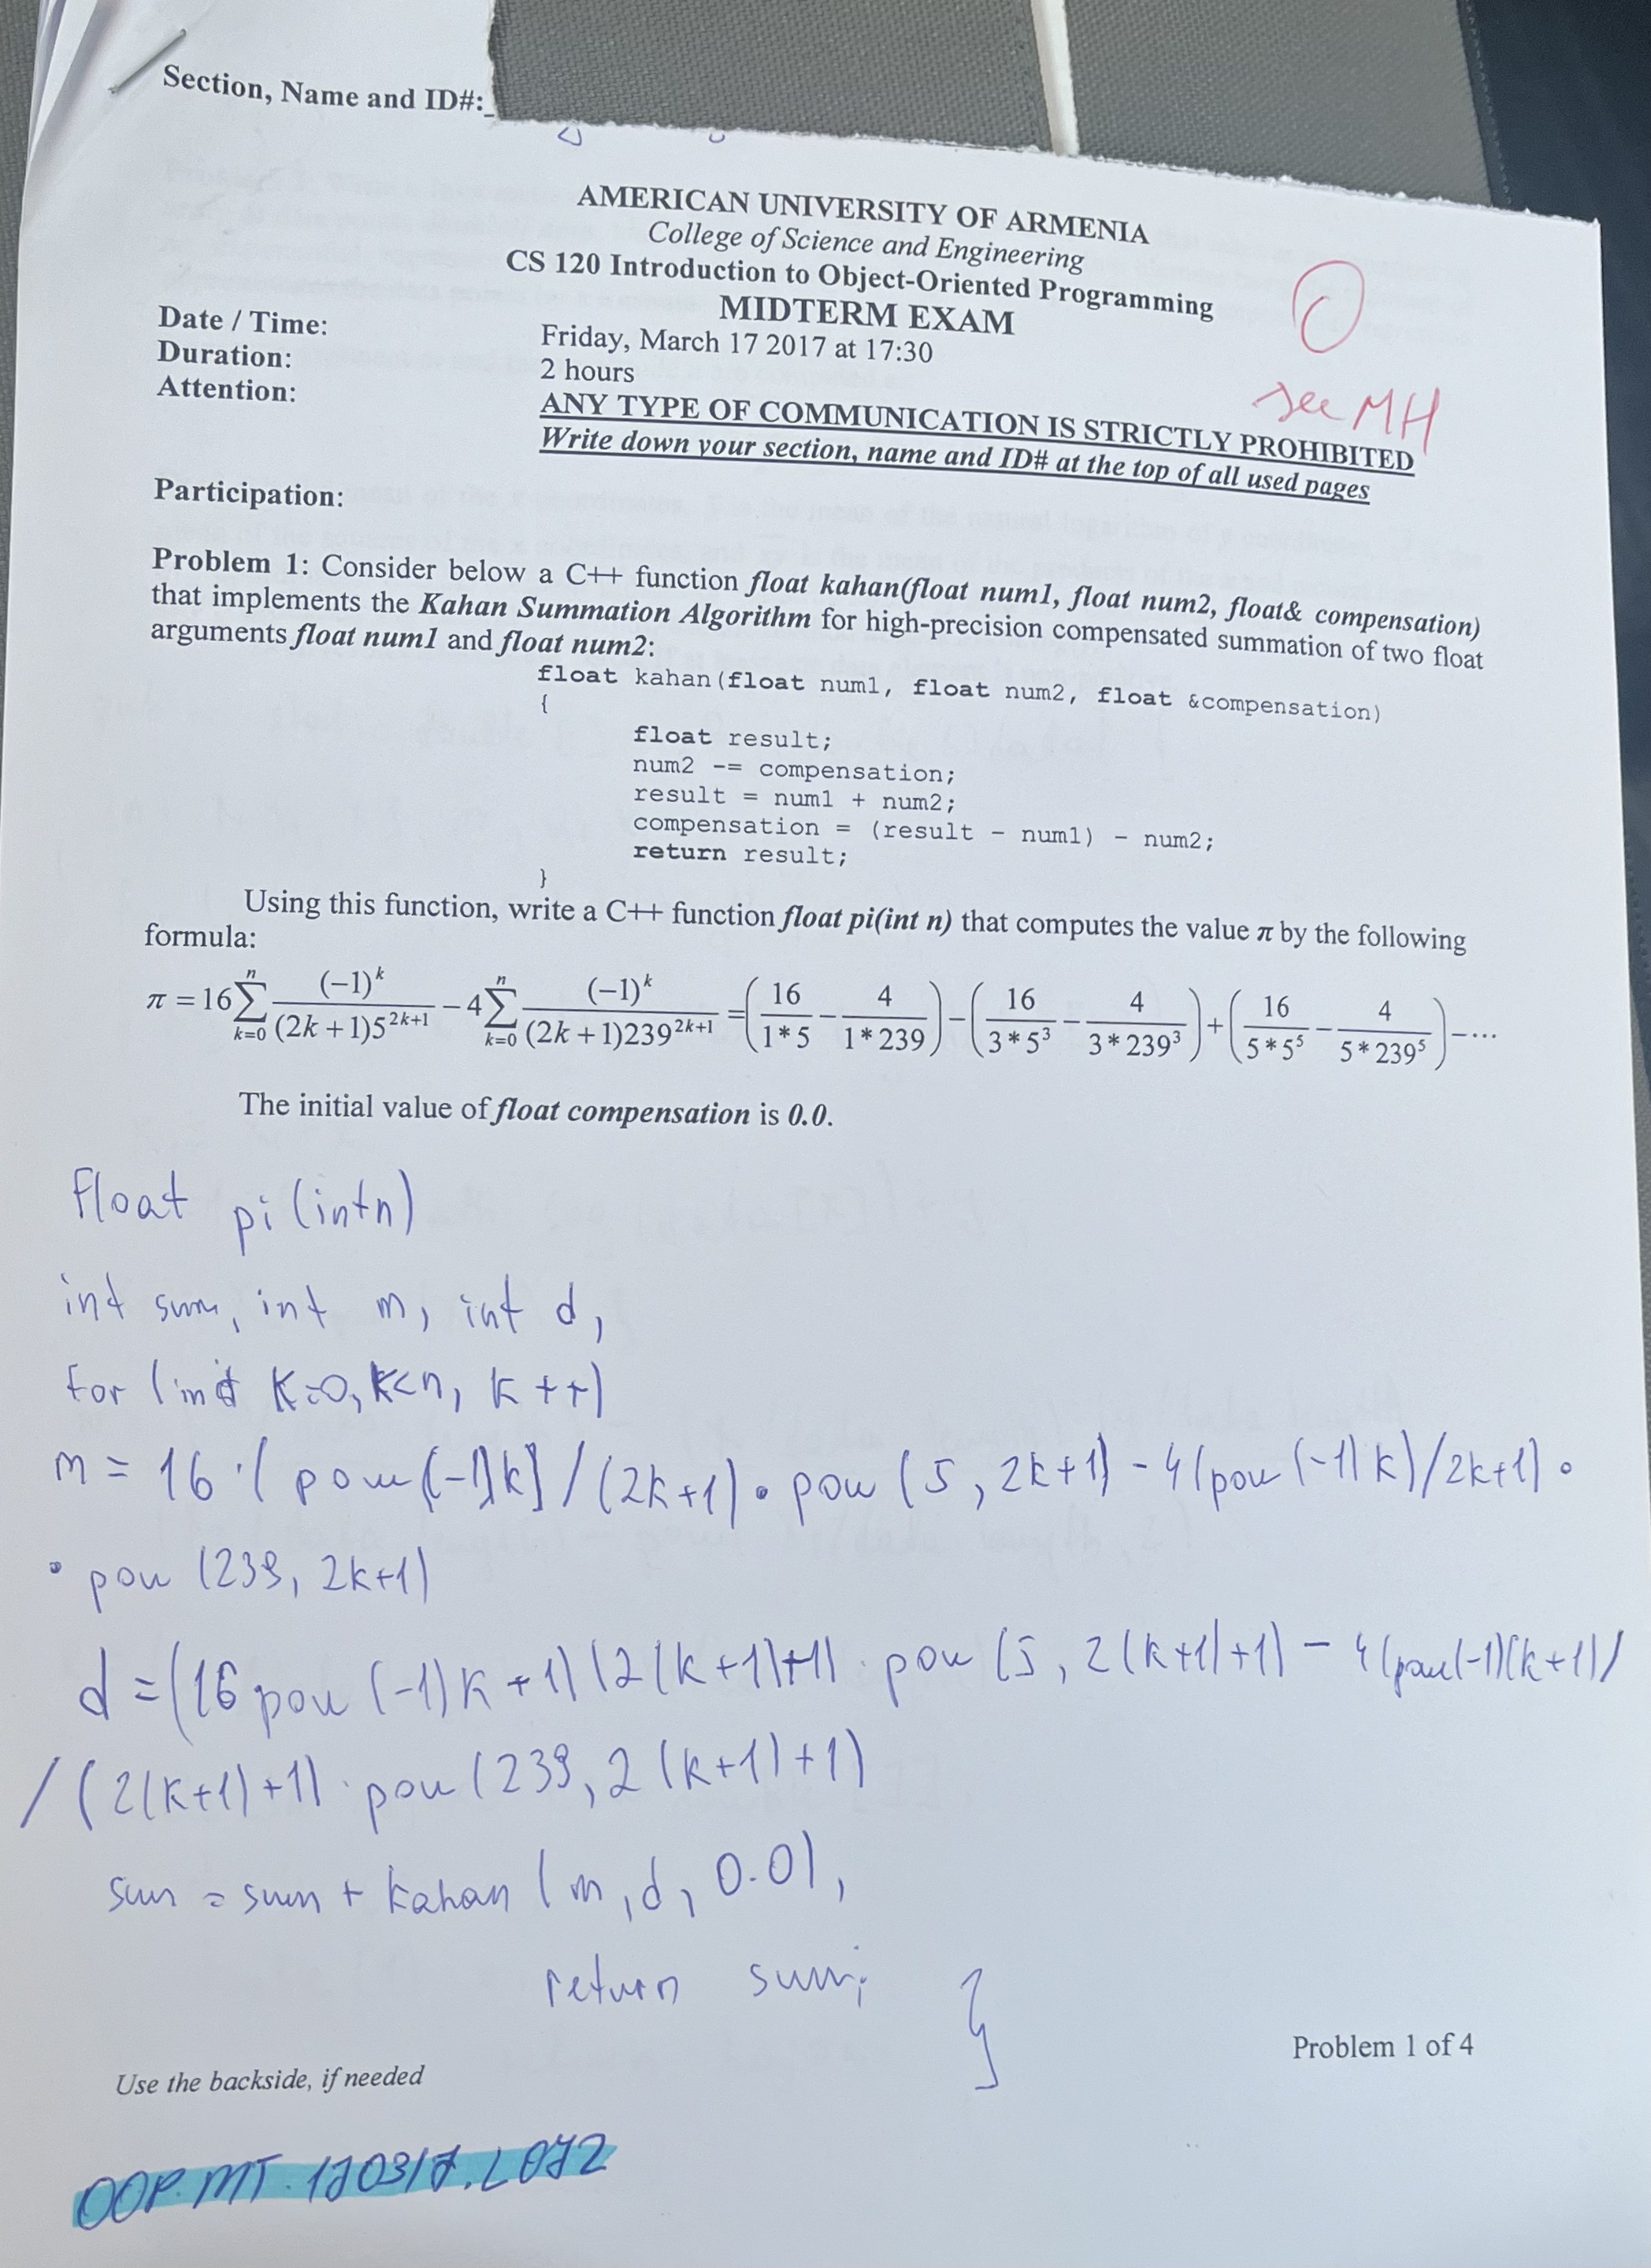 Section, Name and ID#:_
AMERICAN UNIVERSITY OF ARMENIA
College of Science and Engineering
CS 120 Introduction to Object-Oriented Programming
MIDTERM EXAM
0
see MH
Date / Time: Friday, March 17 2017 at 17:30
Duration: 2 hours
Attention: ANY TYPE OF COMMUNICATION IS STRICTLY PROHIBITED
Write down your section, name and ID# at the top of all used pages
Participation:
Problem 1: Consider below a C++ function float kahan(float num1, float num2, float& compensation)
that implements the Kahan Summation Algorithm for high-precision compensated summation of two float
arguments float num1 and float num2:
float kahan(float num1, float num2, float &compensation)
{
float result;
num2 -= compensation;
result = num1 + num2;
compensation = (result - num1) - num2;
return result;
}
Using this function, write a C++ function float pi(int n) that computes the value π by the following
formula:
π = 16 ∑_{k=0}^{n} (-1)^k / ((2k+1)5^{2k+1}) - 4 ∑_{k=0}^{n} (-1)^k / ((2k+1)239^{2k+1}) = (16/(1*5) - 4/(1*239)) - (16/(3*5^3) - 4/(3*239^3)) + (16/(5*5^5) - 4/(5*239^5)) - ...
The initial value of float compensation is 0.0.
float pi (int n)
int sum, int m, int d,
for (int k=0, k<n, k++)
m = 16 · ( pow (-1)k) / (2k+1) · pow (5, 2k+1) - 4 (pow (-1) k) / 2k+1) ·
· pow (239, 2k+1)
d = (16 pow (-1)k+1) (2(k+1)+1) · pow (5, 2(k+1)+1) - 4 (pow(-1)(k+1) /
/ (2(k+1)+1) · pow (239, 2(k+1)+1)
sum = sum + kahan (m, d, 0.0),
return sum; }
Problem 1 of 4
Use the backside, if needed
OOP.MT.170317.L072